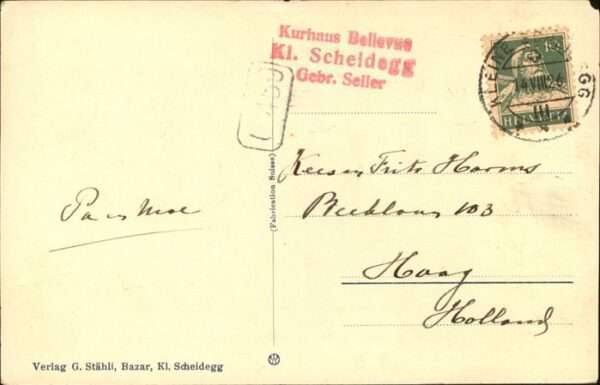 Kurhaus Bellevue
Kl. Scheidegg
Gebr. Seiler
HELVETIA
(Fabrication Suisse)
Kees en Frits Harms
Beeklaan 103
Haag
Holland
Pa en Moe
Verlag G. Stähli, Bazar, Kl. Scheidegg